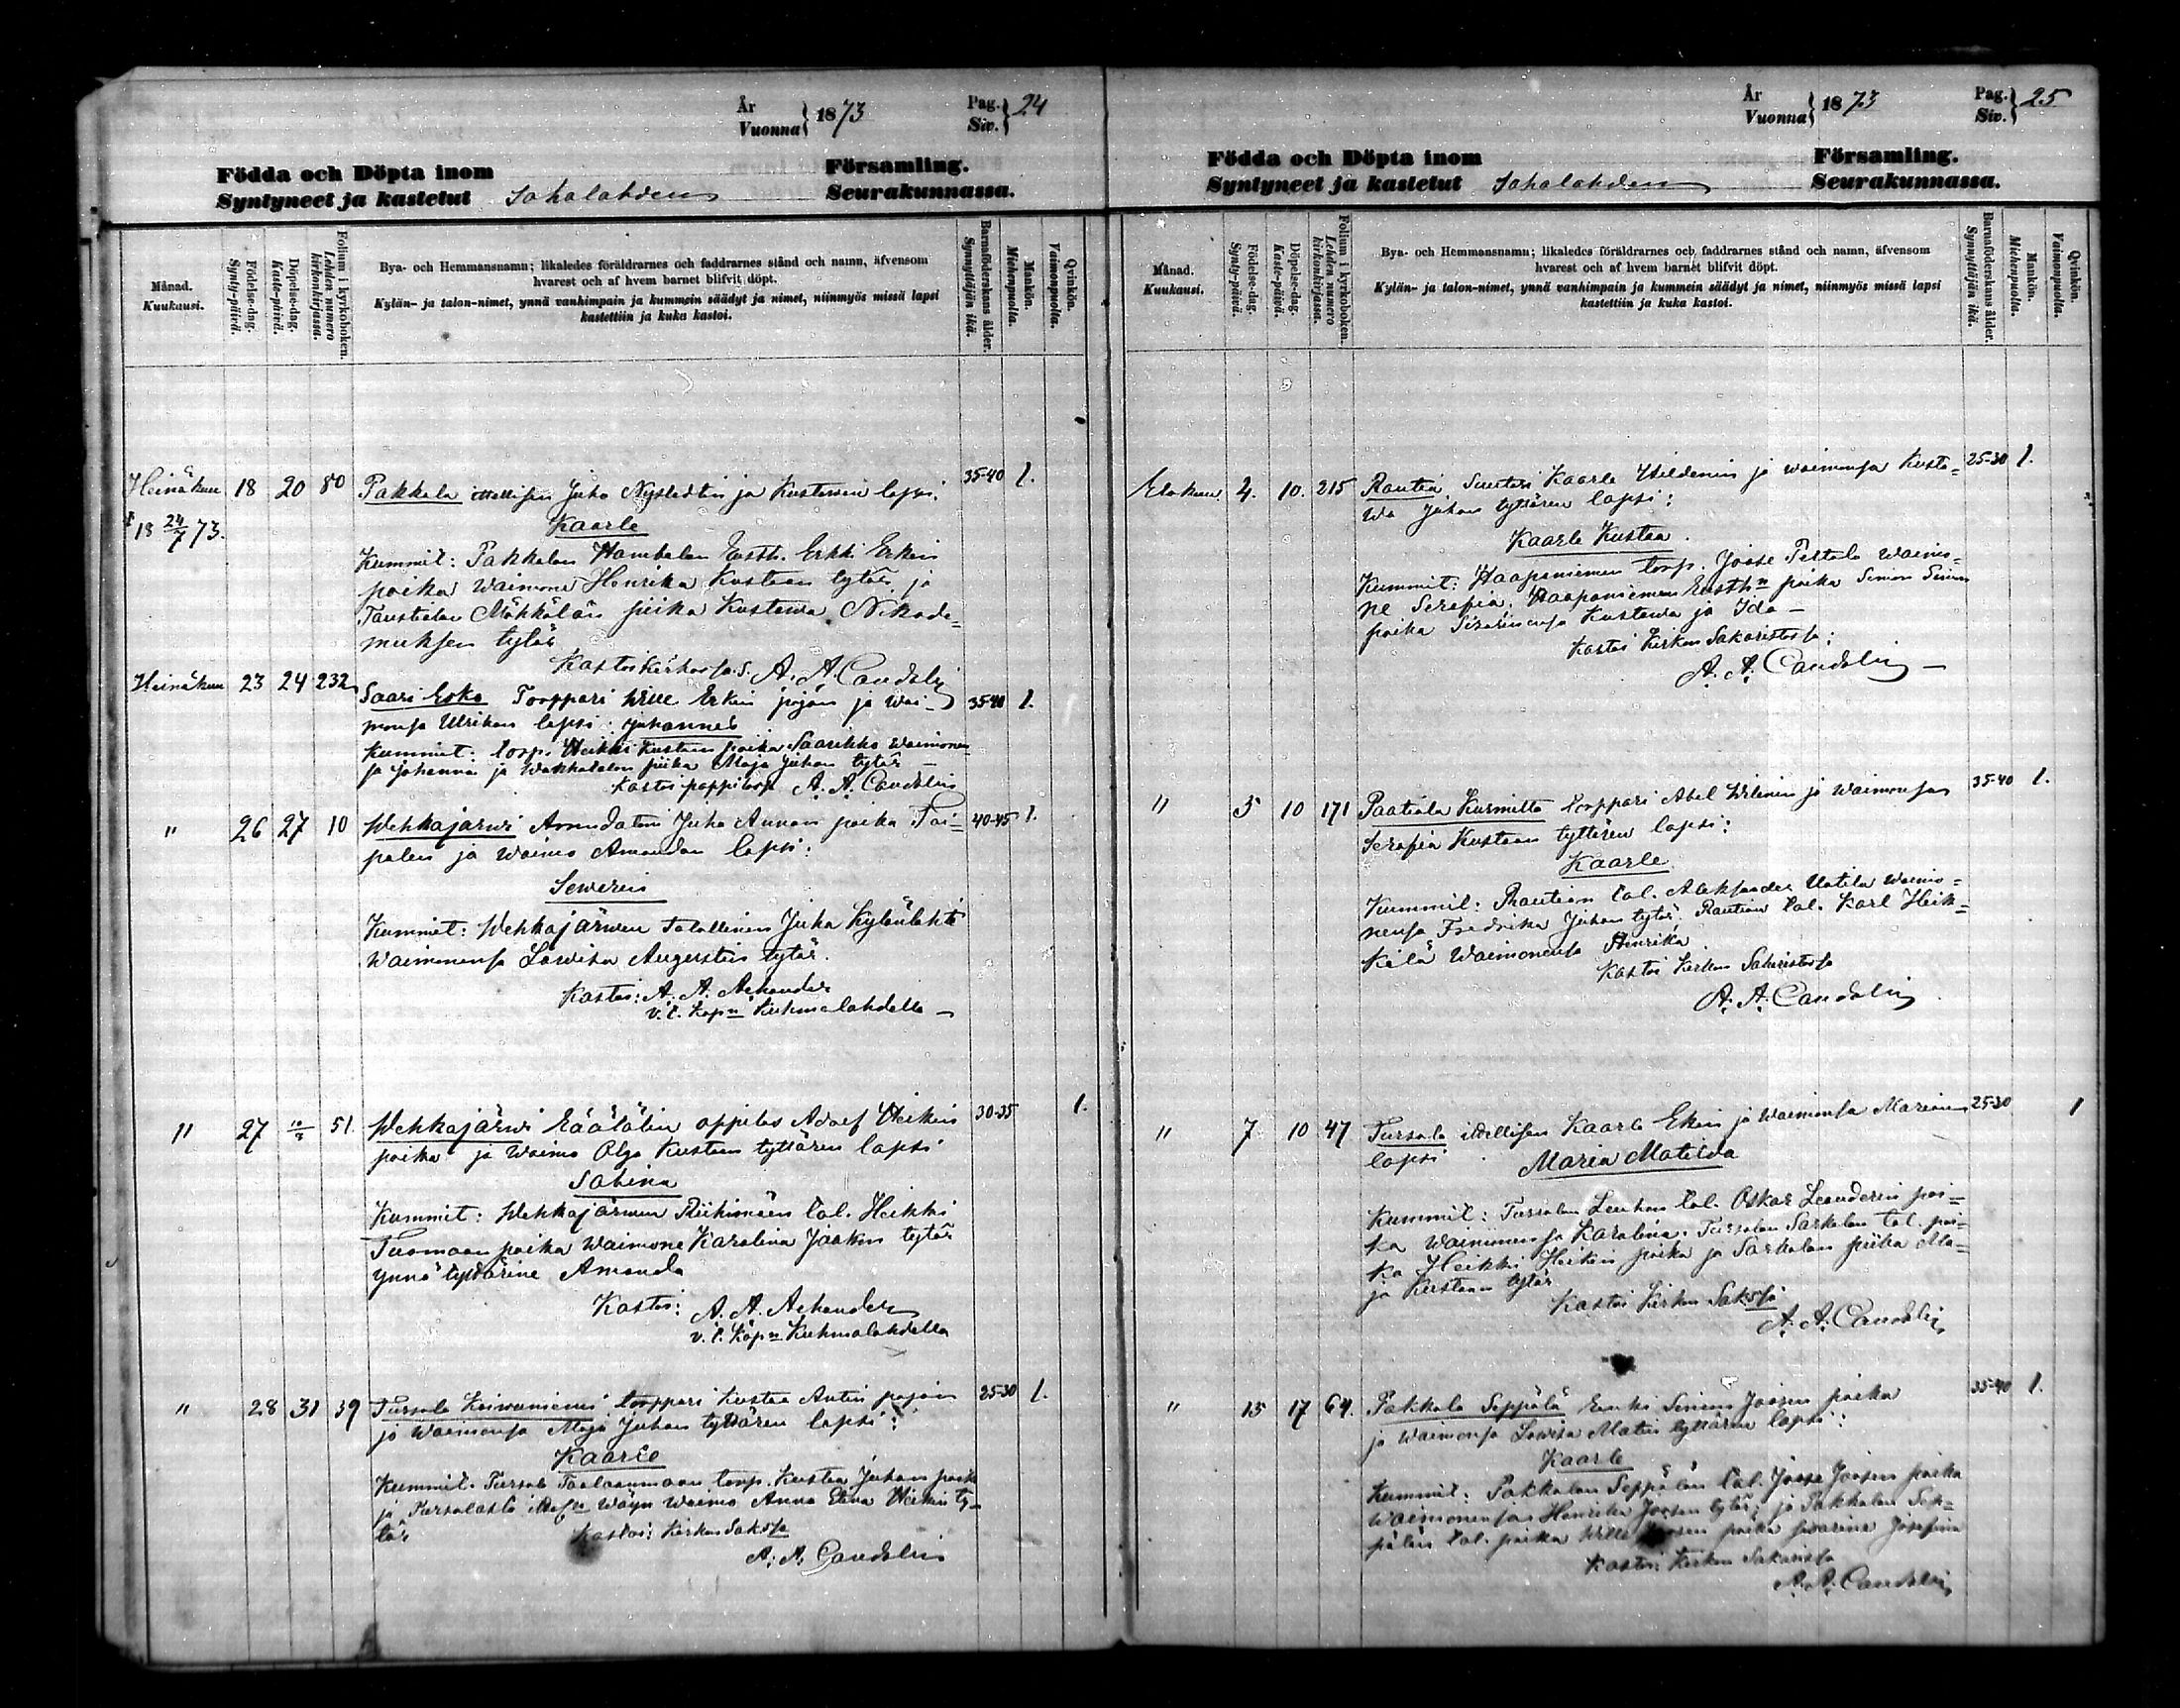 År
Vuonna } 1873
Pag.
Siv. } 24
Födda och Döpta inom Församling.
Syntyneet ja kastetut Sahalahden Seurakunnassa.
Månad.
Kuukausi.
Födelse-dag.
Synty-päivä.
Döpelse-dag.
Kaste-päivä.
Folium i kyrkoboken.
Lehden numero
kirkonkirjassa.
Bya- och Hemmansnamn; likaledes föräldrarnes och faddrarnes stånd och namn, äfvensom
hvarest och af hvem barnet blifvit döpt.
Kylän- ja talon-nimet, ynnä vanhimpain ja kummein säädyt ja nimet, niinmyös missä lapsi
kastettiin ja kuka kastoi.
Barnaföderskans ålder.
Synnyttäjän ikä.
Mankön.
Miehenpuolta.
Qvinkön.
Vaimonpuolta.
Heinäkuu 18 20 80 Pakkala itellisen Juho Nystedtin ja Kustawan lapsi. 35-40 1.
† 18 24/7 73.
Kaarle
Kummit: Pakkalan Erkki Erkin
poika waimone Henrika Kustaan tytär ja
Taustialan Mäkkälän piika Kustawa Nikode=
muksen tytär
Kastoi Kirkossa s. A. A. Candolin
Heinäkuu 23 24 232 Saari Esko Torppari Wille Erkin pojan ja wai- 35-40 1.
monsa Ulrikan lapsi: Juhannes
Kummit: torp. Heikki Kustaan poika Saarikko waimonen=
sa Johanna ja Wakkalalan piika Maja Juhan tytär
Kastoi pappilassa A. A. Candolin
" 26 27 10 Wehkajärwi Juho Annan poika Tai= 40-45 1.
palen ja waimo Amandan lapsi:
Sewerin
Kummit: Wehkajärwen Talollinen Juha Kylänlahti
waimonensa Lowisa Augustin tytär.
Kastoi: A. A. Achander
v. t. Kapn Kuhmalahdella
" 27 10/8 51. Wehkajärwi Räätälin oppilas Adolf Heikin 30-35 1.
poika ja waimo Olga Kustaan tyttären lapsi
Sabina
Kummit: Wehkajärwen Riihimäen tal. Heikki
Tuomaan poika waimone Karolina Jaakon tytär
ynnä tyttärine Amanda
Kastoi: A. A. Achander
v. t. Kapn Kuhmalahdella
" 28 31 39 Tursola Koiwuniemi torppari Kustaa Antin pojan 25-30 1.
ja waimonsa Maja Juhan tyttären lapsi:
Kaarlo
Kummit. Tursola torp. Kustaa Juhan poika
ja Tursolasta waimo Anna Elina Heikin ty-
tär
Kastoi: Kirkon Sakssa
A. A. Candolin
År
Vuonna } 1873
Pag.
Siv. } 25
Födda och Döpta inom Församling.
Syntyneet ja kastetut Sahalahden Seurakunnassa.
Månad.
Kuukausi.
Födelse-dag.
Synty-päivä.
Döpelse-dag.
Kaste-päivä.
Folium i kyrkoboken.
Lehden numero
kirkonkirjassa.
Bya- och Hemmansnamn; likaledes föräldrarnes och faddrarnes stånd och namn, äfvensom
hvarest och af hvem barnet blifvit döpt.
Kylän- ja talon-nimet, ynnä vanhimpain ja kummein säädyt ja nimet, niinmyös missä lapsi
kastettiin ja kuka kastoi.
Barnaföderskans ålder.
Synnyttäjän ikä.
Mankön.
Miehenpuolta.
Qvinkön.
Vaimonpuolta.
Elokuu. 4. 10. 215 Rautia Suutari Kaarle Hildenin ja waimonsa Kusta= 25-30 1.
wa Juhan tyttären lapsi:
Kaarle Kustaa.
Kummit: Haapaniemen torp. Joose Pertola waimo=
ne Serafia. Haapaniemen poika Simon Simon
poika sisarinensa Kustawa ja Ida -
Kastoi Kirkon Sakaristossa:
A. A. Candolin
" 5 10 171 Paatiala Kurmitto torppari Abel Wileniin ja waimonsa 35-40 1.
Serafia Kustaan tyttären lapsi:
Kaarle
Kummit: Rautian tal. Aleksander Uotila waimo=
nensa Fredrika Juhan tytär. Rautian tal. Karl Heik=
kilä waimonensa Henrika.
Kastoi Kirkon Sakaristossa
A. A. Candolin
" 7 10 47 Tursola itellisen Kaarle Ekin ja waimonsa Marian 25-30 1
lapsi
Maria Matilda
Kummit: Tursolan Leuhan tal. Oskar Leanderin poi=
ka waimonensa Karolina. Tursolan Sarkalan tal. poi-
ka Heikki Heikin poika ja Sarkalan piika Ma=
ja Kustaan tytär
Kastoi Kirkon Sakssa
A. A. Candolin
" 15 17 64. Pakkala Seppälä Simon Joosen poika 35-40 1.
ja waimonsa Lowisa Matin tyttären lapsi:
Kaarle
Kummit: Pakkalan Seppälän tal. Joose Joosen poika
waimonensa Henrika Joosen tytär; ja Pakkalan Sep=
pälän tal. poika Wille Joosen poika sisarine Josefina
Kastoi: Kirkon Sakarissa
A. A. Candolin